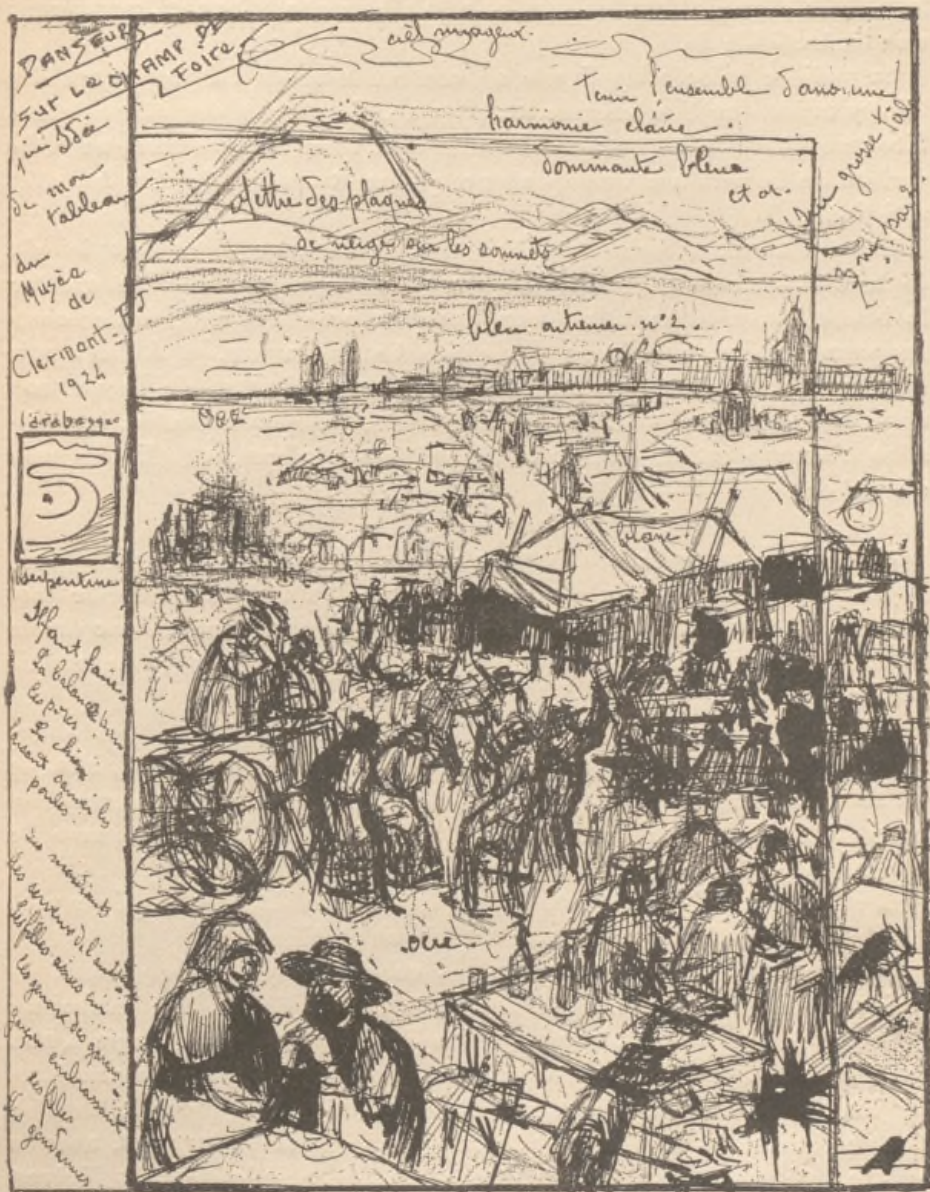 DANSEURS
SUR LE CHAMP DE
FOIRE.
1ère Idée
de mon
tableau
du
Musée
de
Clermont-Fd
1924
l'arabesque
serpentine
Il faut faire
La balance
Les porcs
Le chien
faisant sauver les
poules
Les serveurs de l'
Les filles assises sur
les genoux des garçons.
garçon embrassant
des filles
Les gendarmes
ciel nuageux.
Tenir l'ensemble dans une
harmonie claire.
dominante bleue
et or.
Mettre des plaques
de neige sur les sommets
bleu outremer. n° 2.
ocre
blanc.
ocre.